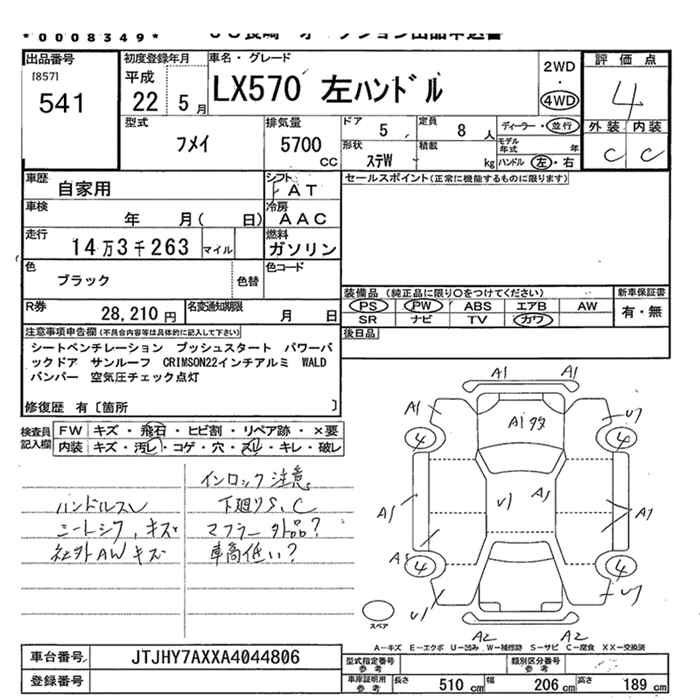 *0008349*
出品番号
[857]
541
初度登録年月
平成
22 5月
車名・グレード
LX570 左ハンドル
2WD
・
4WD
評価点
4
外装 内装
C C
型式
フメイ
排気量
5700
CC
ドア
5
定員
8 人
ディーラー・並行
形状
ステW
積載
kg
モデル年式 年
ハンドル 左・右
車歴
自家用
シフト
F AT
セールスポイント(正常に機能するものに限ります)
車検
年 月( 日)
冷房
AAC
走行
14万3千263 マイル
燃料
ガソリン
色
ブラック
色替
色コード
装備品 (純正品に限り○をつけてください)
PS PW ABS エアB AW
SR ナビ TV カワ
新車保証書
有・無
R券
28,210 円
名変通知期限
月 日
後日品
注意事項申告欄(不具合内容等は具体的に記入して下さい)
シートベンチレーション プッシュスタート パワーバ
ックドア サンルーフ CRIMSON22インチアルミ WALD
バンパー 空気圧チェック点灯
修復歴 有〔箇所 〕
検査員
記入欄
FW キズ・飛石・ヒビ割・リペア跡・×要
内装 キズ・汚レ・コゲ・穴・スレ・キレ・破レ
インロック注意
ハンドルスレ
下廻りS、C
ニーレシフ、キズ
マフラー外品?
社外AWキズ
車高低い?
A1 A1
A1 A1多 U1
4 4
U1 A1
A1 A1
4 4
U1 U1
A2 A2
スペア
A-キズ E-エクボ U-凹み W-補修跡 S-サビ C-腐食 XX-交換済
車台番号 JTJHY7AXXA4044806
登録番号
型式指定番号
参考
類別区分番号
参考
車庫証明用
参考
長さ 510 cm 幅 206 cm 高さ 189 cm